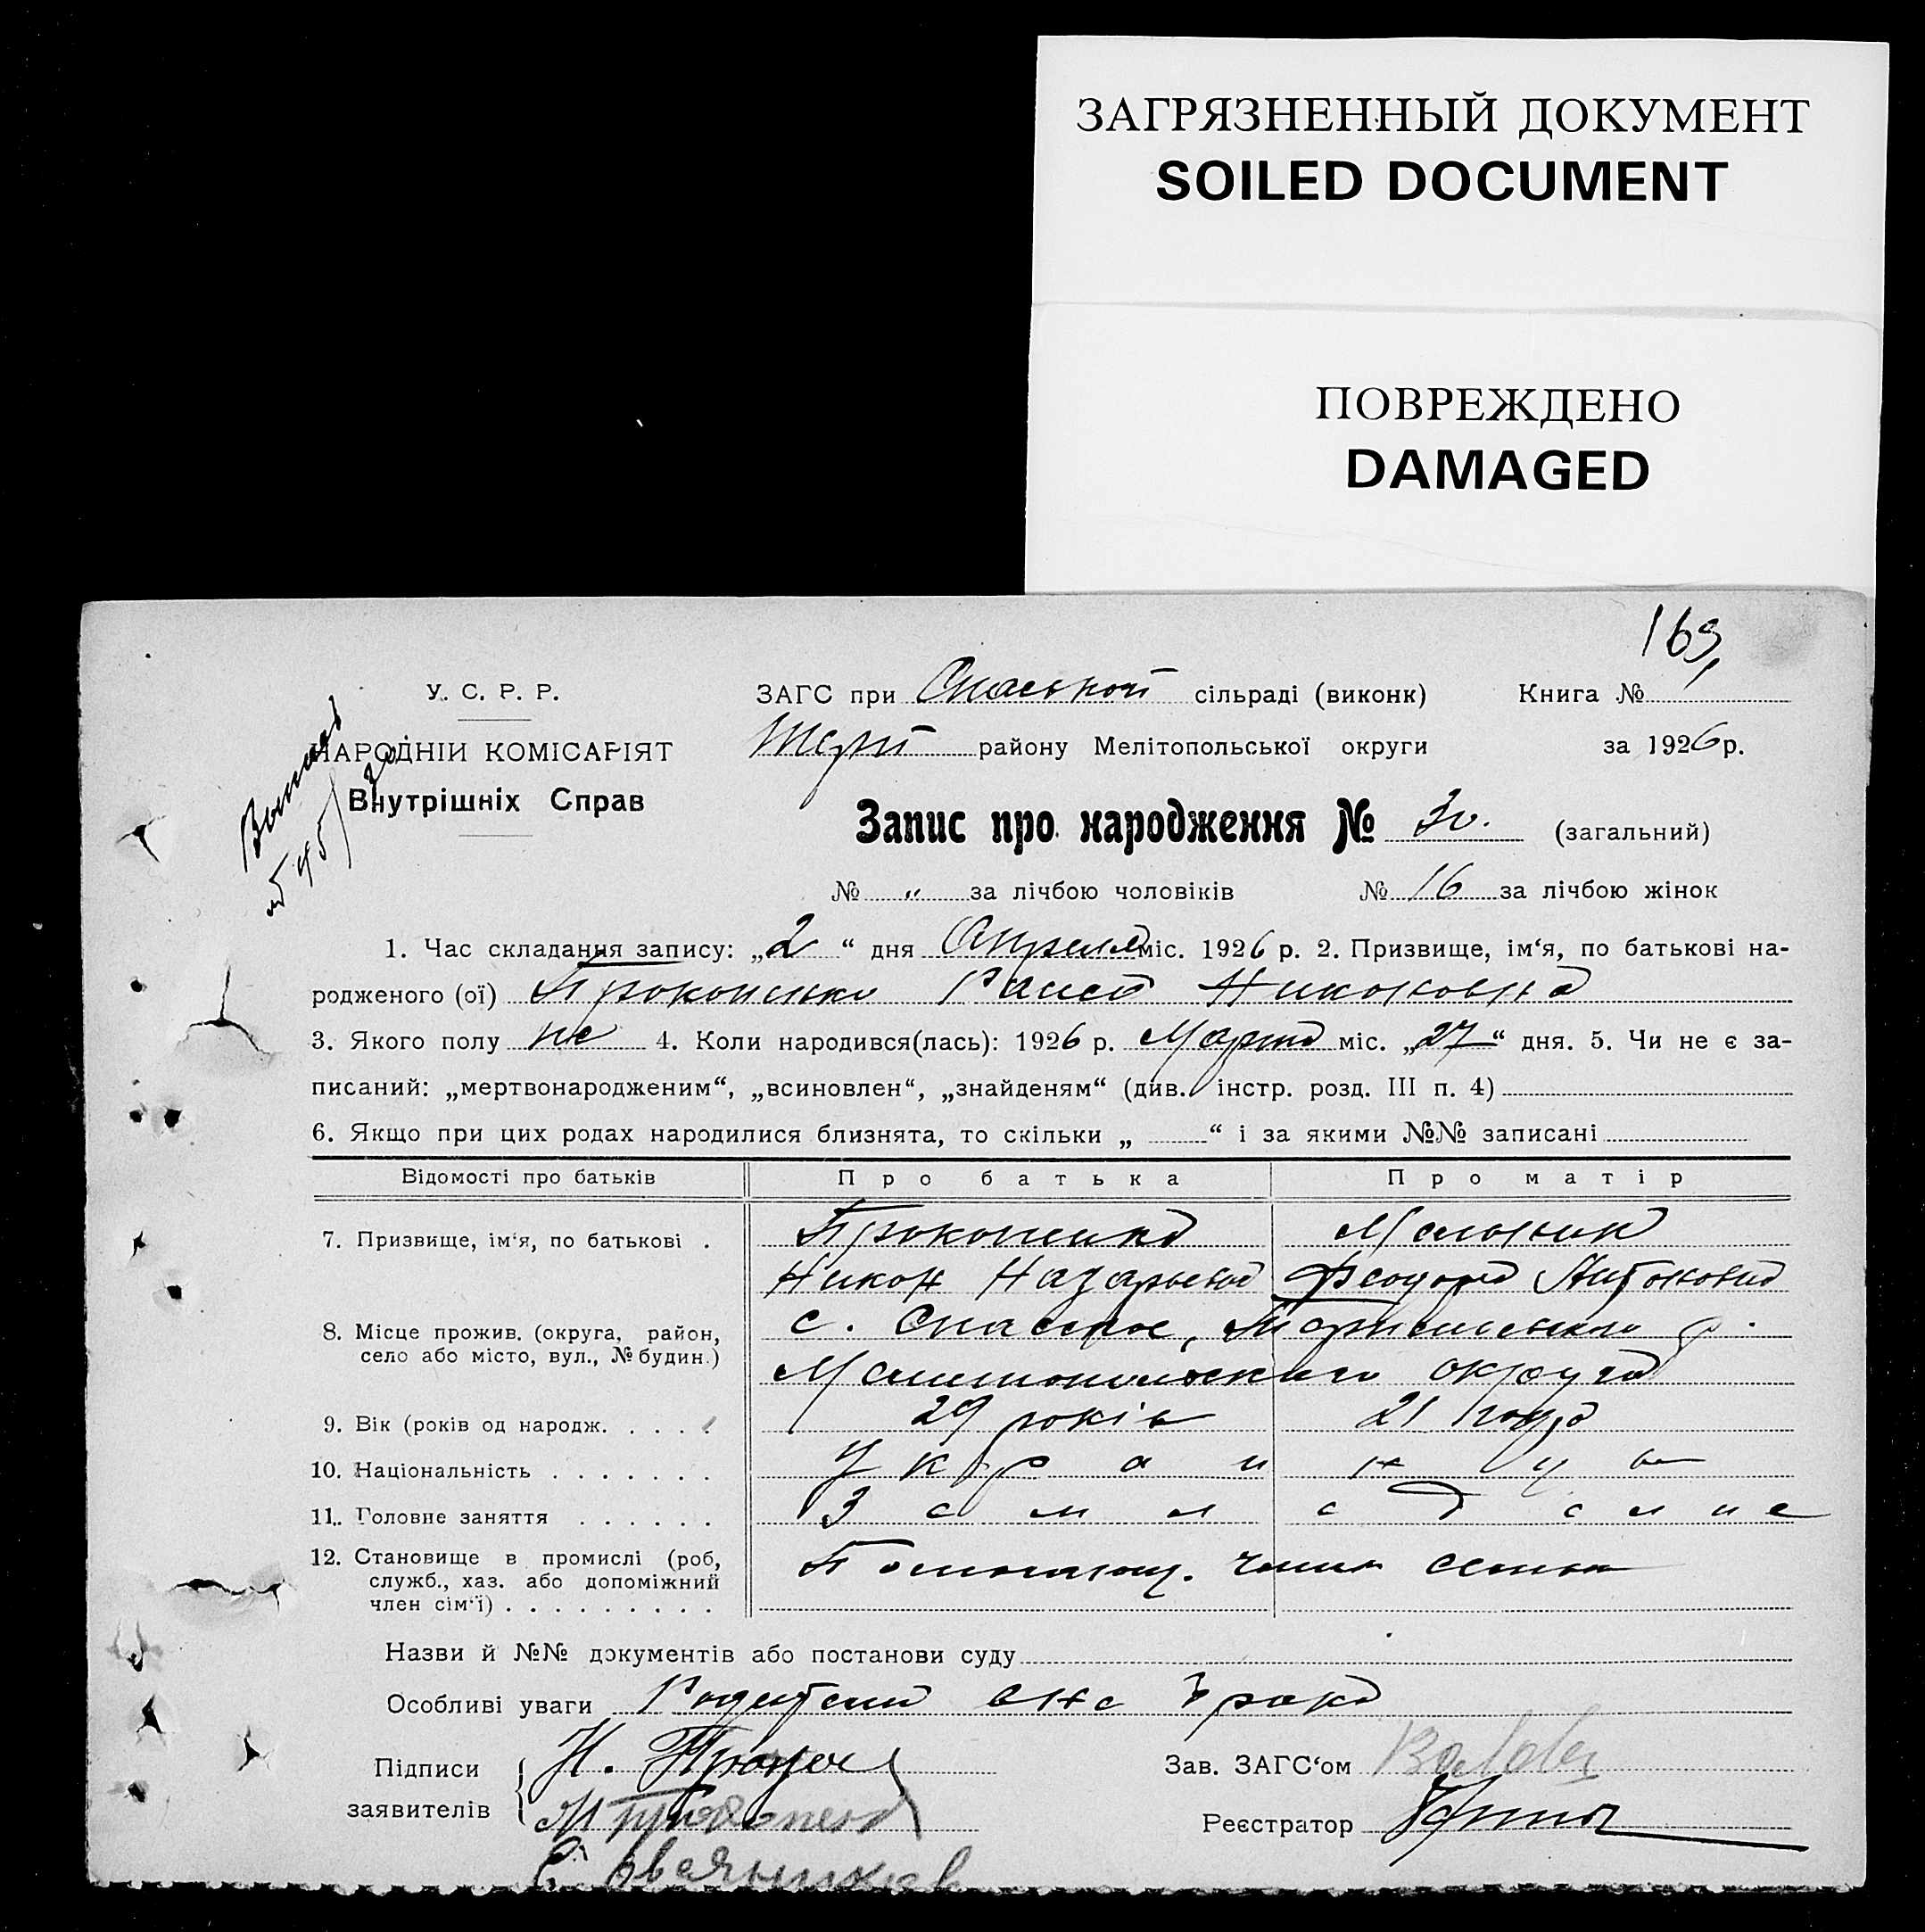 ЗАГРЯЗНЕННЫЙ ДОКУМЕНТ
SOILED DOCUMENT
ПОВРЕЖДЕНО
DAMAGED
169,
У. С. Р. Р.
НАРОДНІЙ КОМІСАРІЯТ
Внутрішніх Справ
ЗАГС при Спаської сільраді (виконк) Книга №
району Мелітопольської округи за 1926 р.
Запис про народження № 30. (загальний)
№ „ за лічбою чоловіків № 16 за лічбою жінок
1. Час складання запису: „2“ дня Апреля міс. 1926 р. 2. Призвище, ім‘я, по батькові на-
родженого (ої) Прокопенко Раиса Никоновна
3. Якого полу 4. Коли народився(лась): 1926 р. Марта міс. „27“ дня. 5. Чи не є за-
писаний: „мертвонародженим“, „всиновлен“, „знайденям“ (див. інстр. розд. III п. 4)
6. Якщо при цих родах народилися близнята, то скільки „ “ і за якими №№ записані
Відомості про батьків Про батька Про матір
7. Призвище, ім‘я, по батькові . Прокопенко Мельник
Никон Назарьевич Феодора Антоновна
8. Місце прожив. (округа, район, с. Спаское, р.
село або місто, вул., № будин.) Мелитопольского округа
9. Вік (років од народж. . . . . 29 років 21 года
10. Національність . . . . . . . Украинцы
11. Головне заняття . . . . . . Земледелие
12. Становище в промислі (роб, Помогающ. член семьи
служб., хаз. або допоміжний
член сім‘ї) . . . . . . . . .
Назви й №№ документів або постанови суду
Особливі уваги Родители вне брака
Підписи Н. Зав. ЗАГС‘ом
заявителів Реєстратор